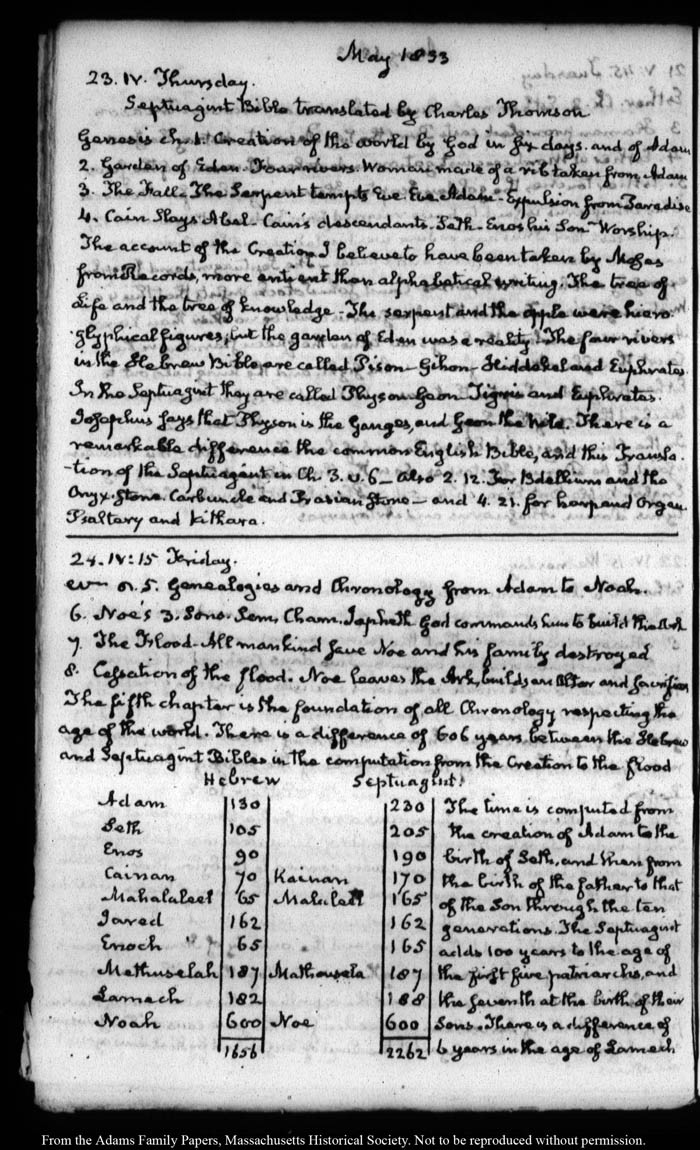 May 1833
23. IV. Thursday.
Septuagint Bible translated by Charles Thomson
Genesis ch. 1. Creation of the world by God in six days. and of Adam
2. Garden of Eden. Four rivers. Woman made of a rib taken from Adam
3. The Fall. The Serpent tempts Eve. Eve Adam - Expulsion from Paradise
4. Cain Slays Abel - Cain's descendants. Seth - Enos his Son - Worship.
The account of the Creation I believe to have been taken by Moses
from Records, more antient than alphabetical writing. The tree of
Life and the tree of knowledge - The serpent and the apple were hiero
glyphical figures, but the garden of Eden was a reality. The four rivers
in the Hebrew Bible are called Pison - Gihon - Hiddekel and Euphrates.
In the Septuagint they are called Physon Geon Tigris and Euphrates.
Josephus says that Physon is the Ganges, and Geon the Nile. There is a
remarkable difference the common English Bible, and this Transla-
-tion of the Septuagint in Ch. 3. v. 6 - also 2. 12. For Bdellium and the
Onyx-Stone. Carbuncle and Prasian Stone - and 4. 21. for harp and Organ.
Psaltery and Kithara.
24. IV:15 Friday.
5. Genealogies and Chronology from Adam to Noah.
6. Noe's 3. Sons. Sem, Cham, Japheth God commands him to build the Ark
7. The Flood - All mankind save Noe and his family destroyed
8. Cessation of the flood. Noe leaves the Ark, builds an Altar and sacrifices
The fifth chapter is the foundation of all Chronology respecting the
age of the world. There is a difference of 606 years between the Hebrew
and Septuagint Bibles in the computation from the Creation to the flood
Hebrew Septuagint.
Adam 130 230 The time is computed from
Seth 105 205 the creation of Adam to the
Enos 90 190 birth of Seth, and then from
Cainan 70 Kainan 170 the birth of the father to that
Mahalaleel 65 Maleleel 165 of the Son through the ten
Jared 162 162 generations. The Septuagint
Enoch 65 165 adds 100 years to the age of
Methuselah 187 Mathousela 187 the first five patriarchs, and
Lamech 182 188 the seventh at the birth of their
Noah 600 Noe 600 Sons. There is a difference of
1656 2262 6 years in the age of Lamech
From the Adams Family Papers, Massachusetts Historical Society. Not to be reproduced without permission.